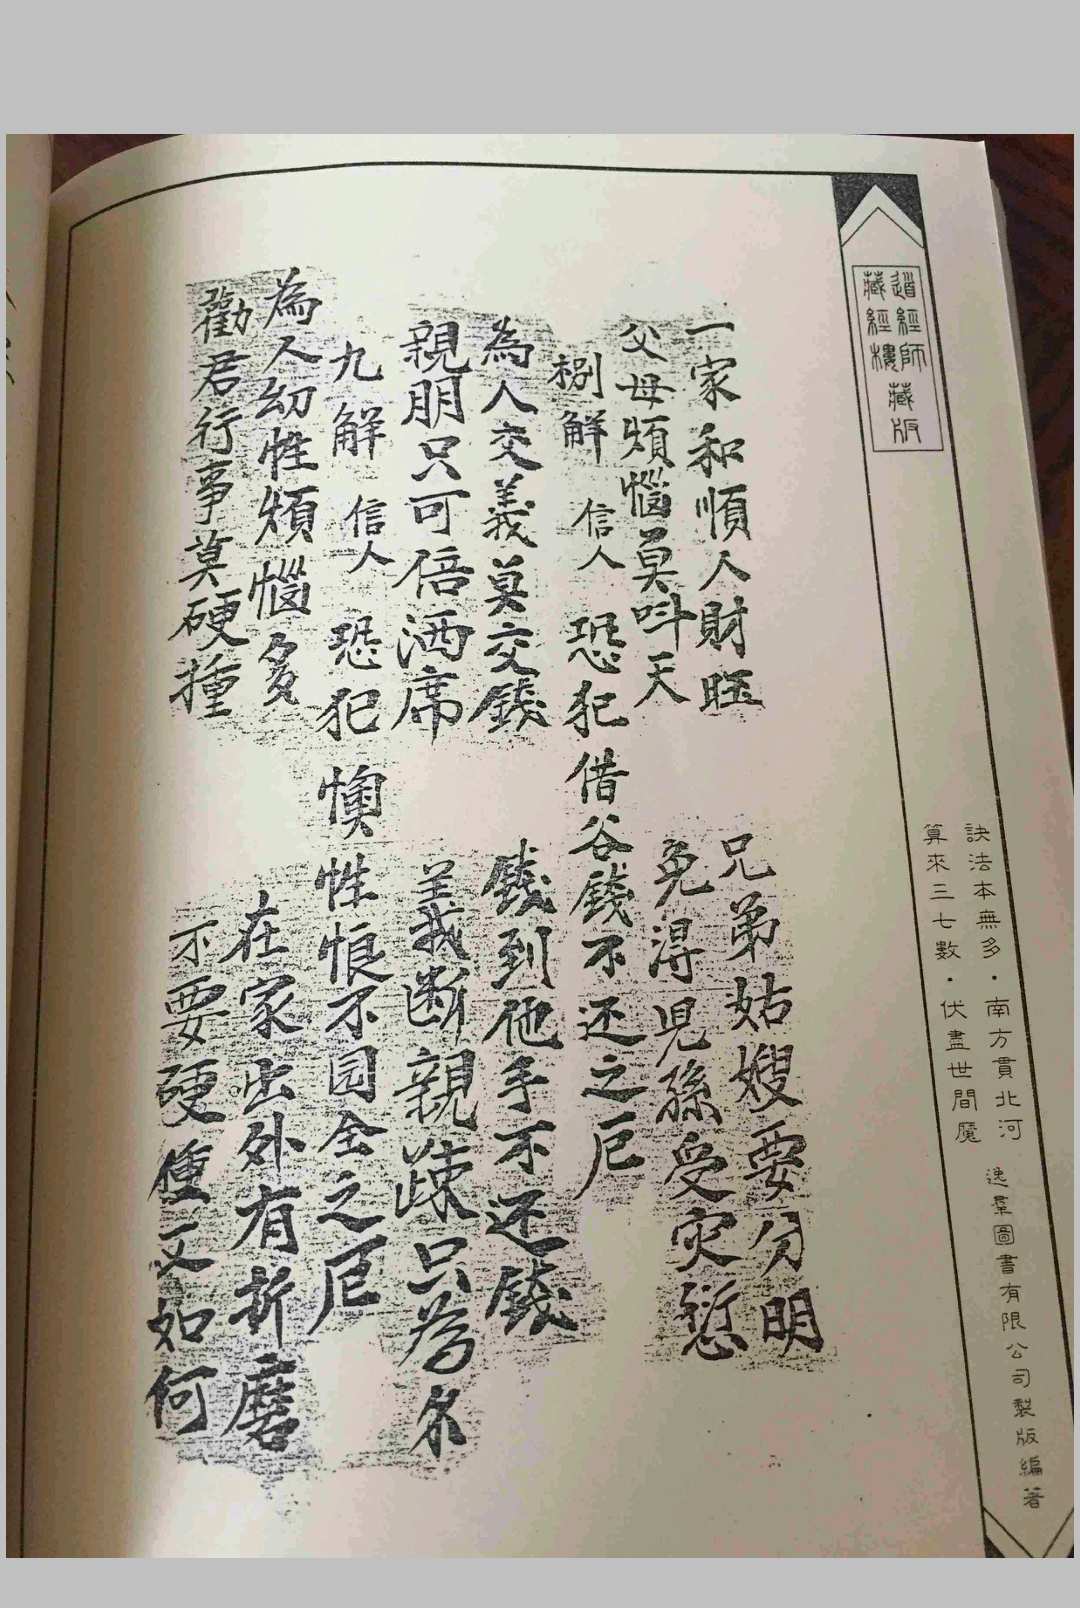 道經師藏版
藏經樓
訣法本無多・南方貫北河
算來三七數・伏盡世間魔
逸羣圖書有限公司製版編著
一家和順人財旺 兄弟姑嫂要分明
父母煩惱莫呌天 免得児孫受灾愆
捌觧 信人 恐犯借谷錢不还之厄
為人交義莫交錢 錢到他手不还錢
親朋只可倍洒席 義断親疎只為尔
九觧 信人 恐犯懊性恨不园全之厄
為人幼性煩惱多 在家出外有折磨
勸君行事莫硬撞 不要硬傻又如何